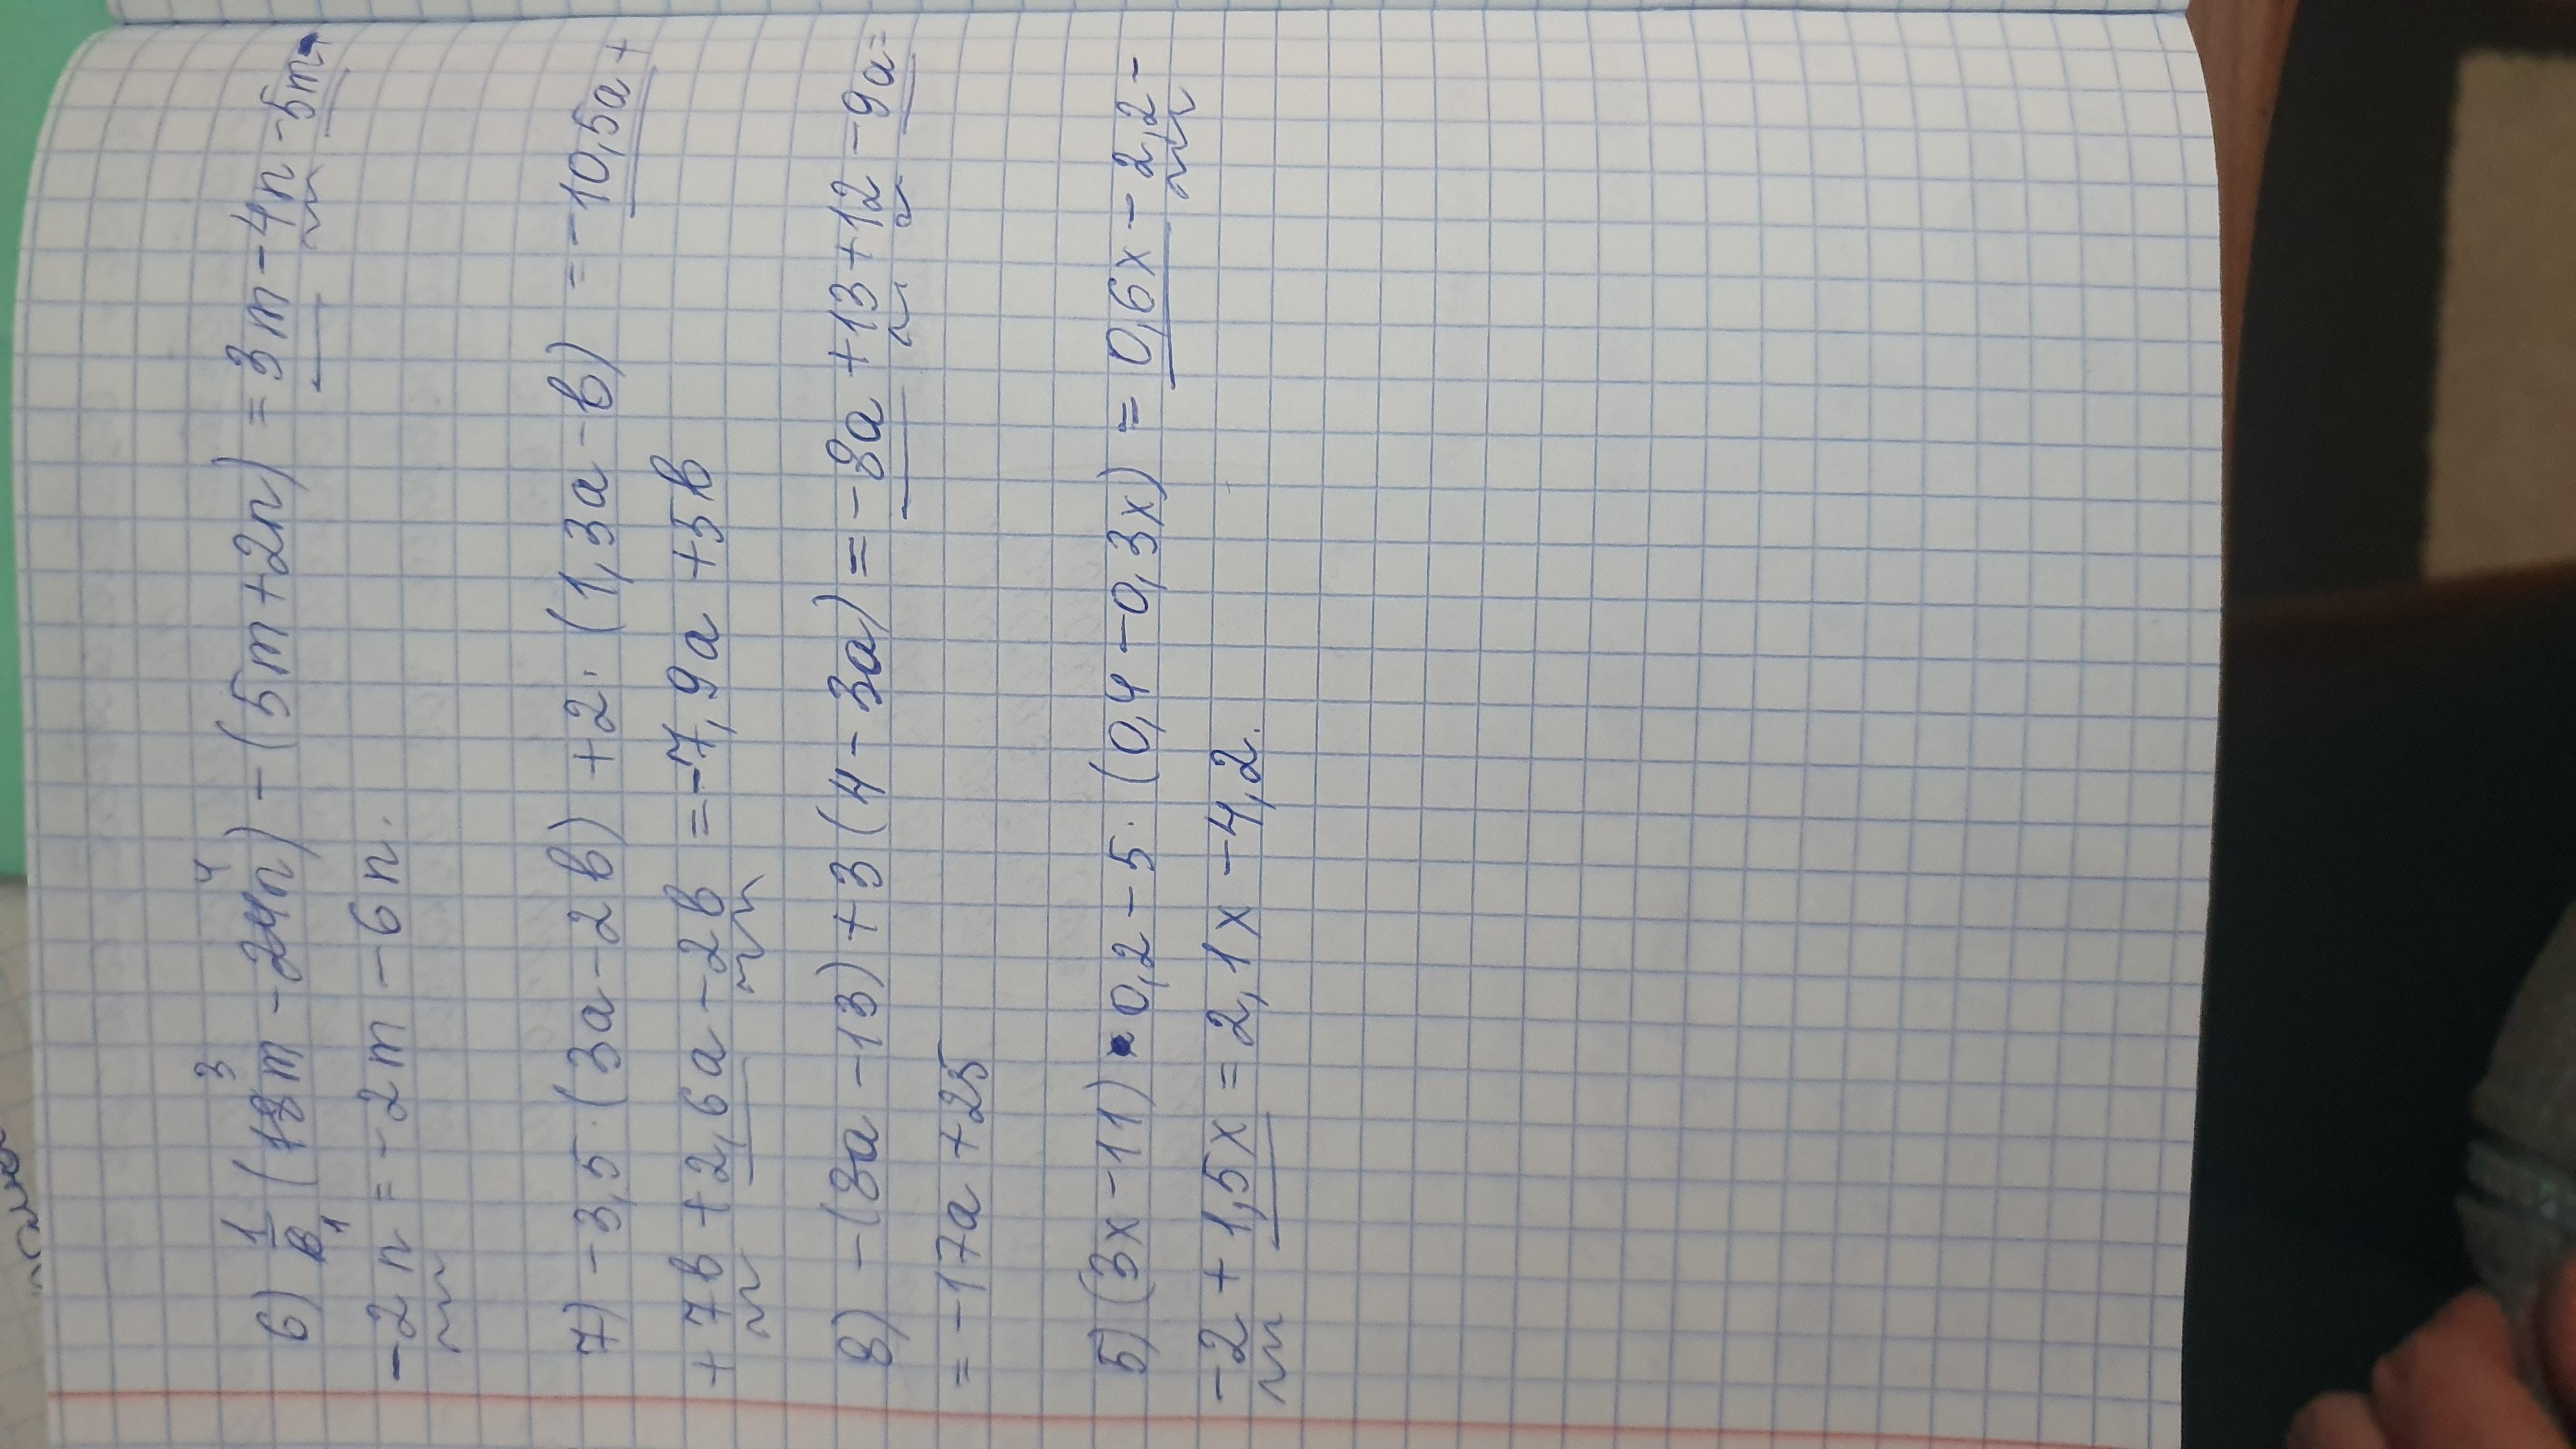 6) 1/6 1 (18 3 m - 24 4 n) - (5m + 2n) = 3m - 4n - 5m -
- 2n = - 2m - 6n.
7) -3,5 · (3a - 2b) + 2 · (1,3a - b) = -10,5a +
+ 7b + 2,6a - 2b = -7,9a + 5b
8) -(8a - 13) + 3(4 - 3a) = -8a + 13 + 12 - 9a =
= -17a + 25
5) (3x - 11) · 0,2 - 5 · (0,4 - 0,3x) = 0,6x - 2,2 -
- 2 + 1,5x = 2,1x - 4,2.